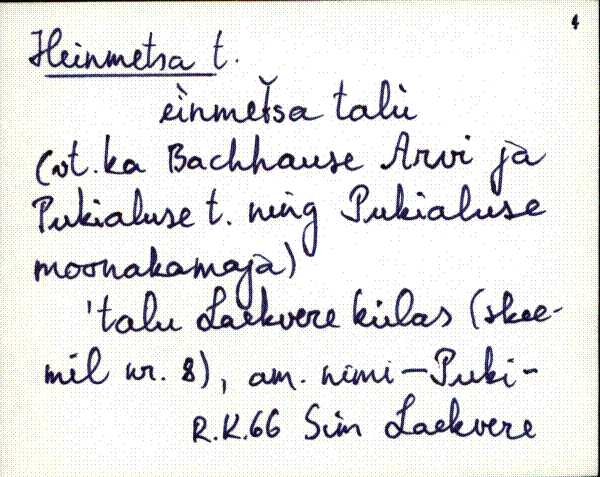 4
Heinmetsa t.
èinmet̆sa talù
(vt. ka Bachhause Arvi ja
Pukialuse t. ning Pukialuse
moonakamaja)
'talu Laekvere külas (skee-
mil nr. 8), am. nimi – Puki-
R.K.66 Sim Laekvere